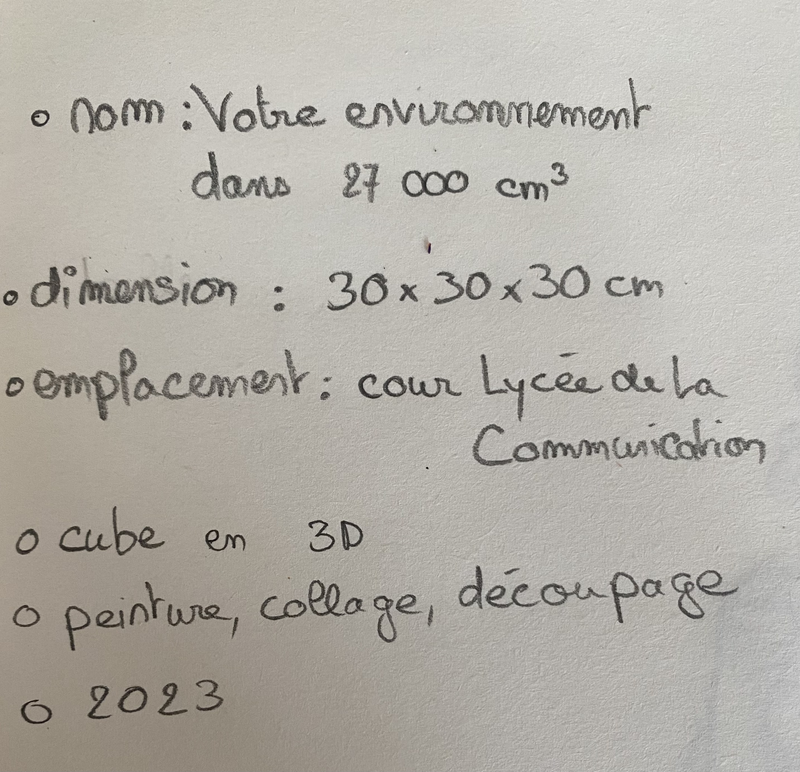 o nom : Votre environnement
dans 27 000 cm³
o dimension : 30 x 30 x 30 cm
o emplacement : cour Lycée de la
Communication
o cube en 3D
o peinture, collage, découpage
o 2023